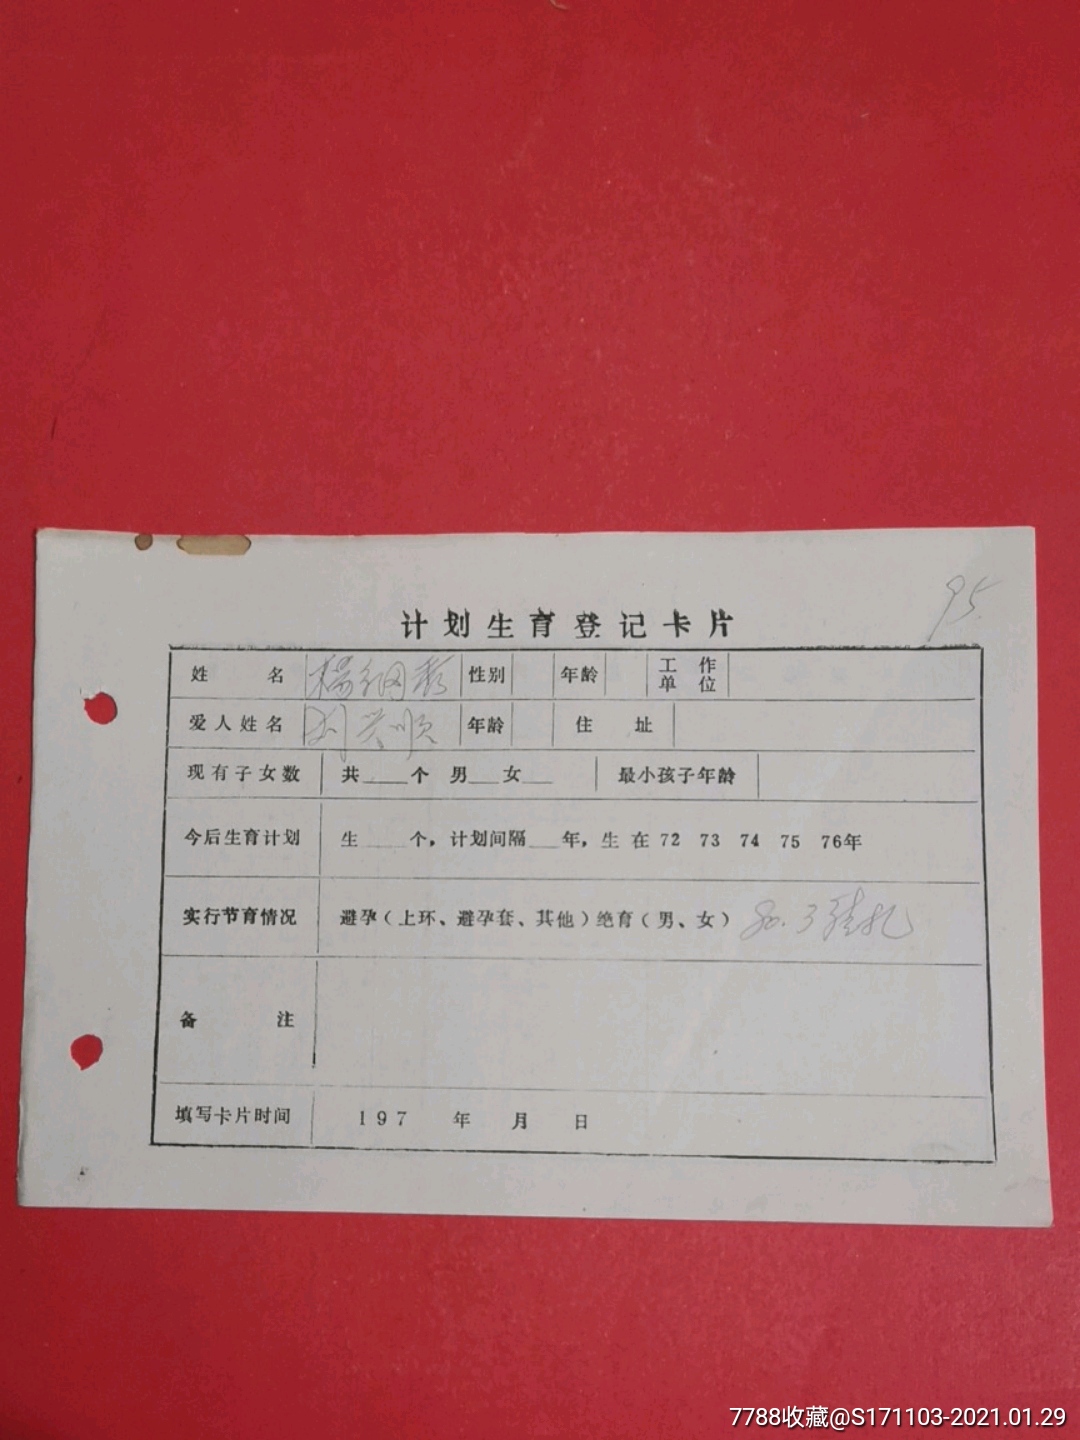 95
计划生育登记卡片
姓 名 杨 秀 性别 年龄 工作单位
爱人姓名 刘兴顺 年龄 住 址
现有子女数 共____个 男___女___ 最小孩子年龄
今后生育计划 生____个，计划间隔___年，生在72 73 74 75 76年
实行节育情况 避孕（上环、避孕套、其他）绝育（男、女） 结扎
备 注
填写卡片时间 197 年 月 日
7788收藏@S171103-2021.01.29